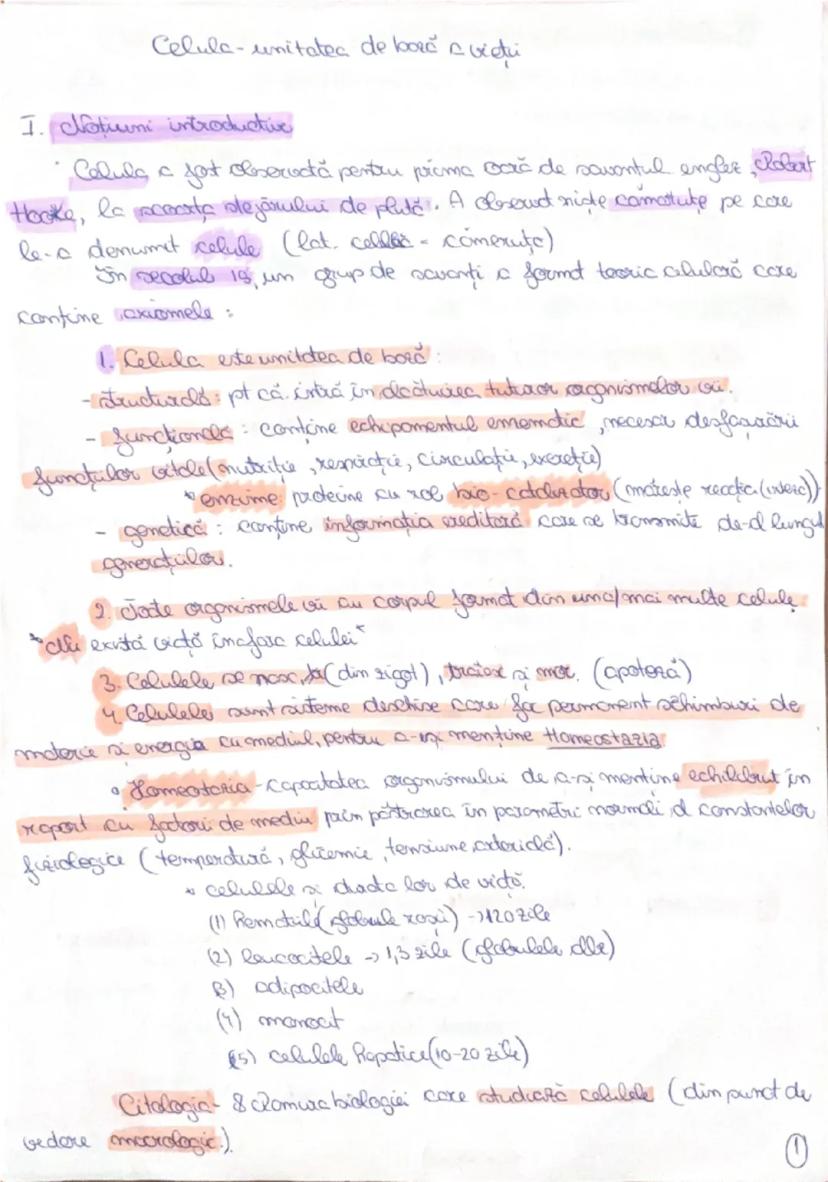 Celula - unitatea de bază a vieții
I. Noțiuni introductive
Celula a fost observată pentru prima oară de savantul englez, Robert
Hooke, la scoarța stejarului de plută. A observat niște camăruțe pe care
le-a denumit celule (lat. cellae = cămeruțe)
În secolul 19, un grup de savanți a format teoria celulară care
conține axiomele :
1. Celula este unitatea de bază :
- structurală : pt că intră în alcătuirea tuturor organismelor vii.
- funcțională : conține echipamentul enzimatic, necesar desfășurării
funcțiilor vitale (nutriție, respirație, circulație, excreție)
* enzime: proteine cu rol bio-catalizator (mărește reacția
- genetică : conține informația ereditară care se transmite de-a lungul
generațiilor.
2. Toate organismele vii au corpul format din una/mai multe celule
* Nu există viață înafara celulei *
3. Celulele se nasc, (din zigot), trăiesc și mor. (apoteză)
4. Celulele sunt sisteme deschise care fac permanent schimburi de
materie și energia cu mediul, pentru a-și menține Homeostazia
• Homeostazia - capacitatea organismului de a-și menține echilibrul în
raport cu factori de mediu prin păstrarea în parametri normali al constantelor
fiziologice (temperatură, glicemie, tensiune arterială).
* celulele și durata lor de viață.
(1) Hematiile (globule roșii) -> 120 zile
(2) leucocitele -> 1,3 zile (globulele albe)
(3) adipocitele
(4) monocit
(5) celulele hepatice (10-20 zile)
Citologia - ramura biologiei care studiază celulele (din punct de
vedere
1